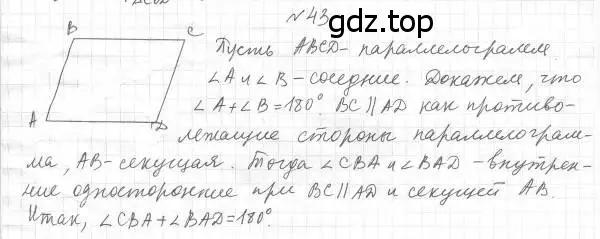 N 43
gdz.top
B
C
A
D
Пусть ABCD - параллелограмм
∠A и ∠B - соседние. Докажем, что
∠A + ∠B = 180°. BC || AD как противо-
лежащие стороны параллелограм-
ма, AB - секущая. Тогда ∠CBA и ∠BAD - внутрен-
ние односторонние при BC || AD и секущей AB.
Итак, ∠CBA + ∠BAD = 180°.